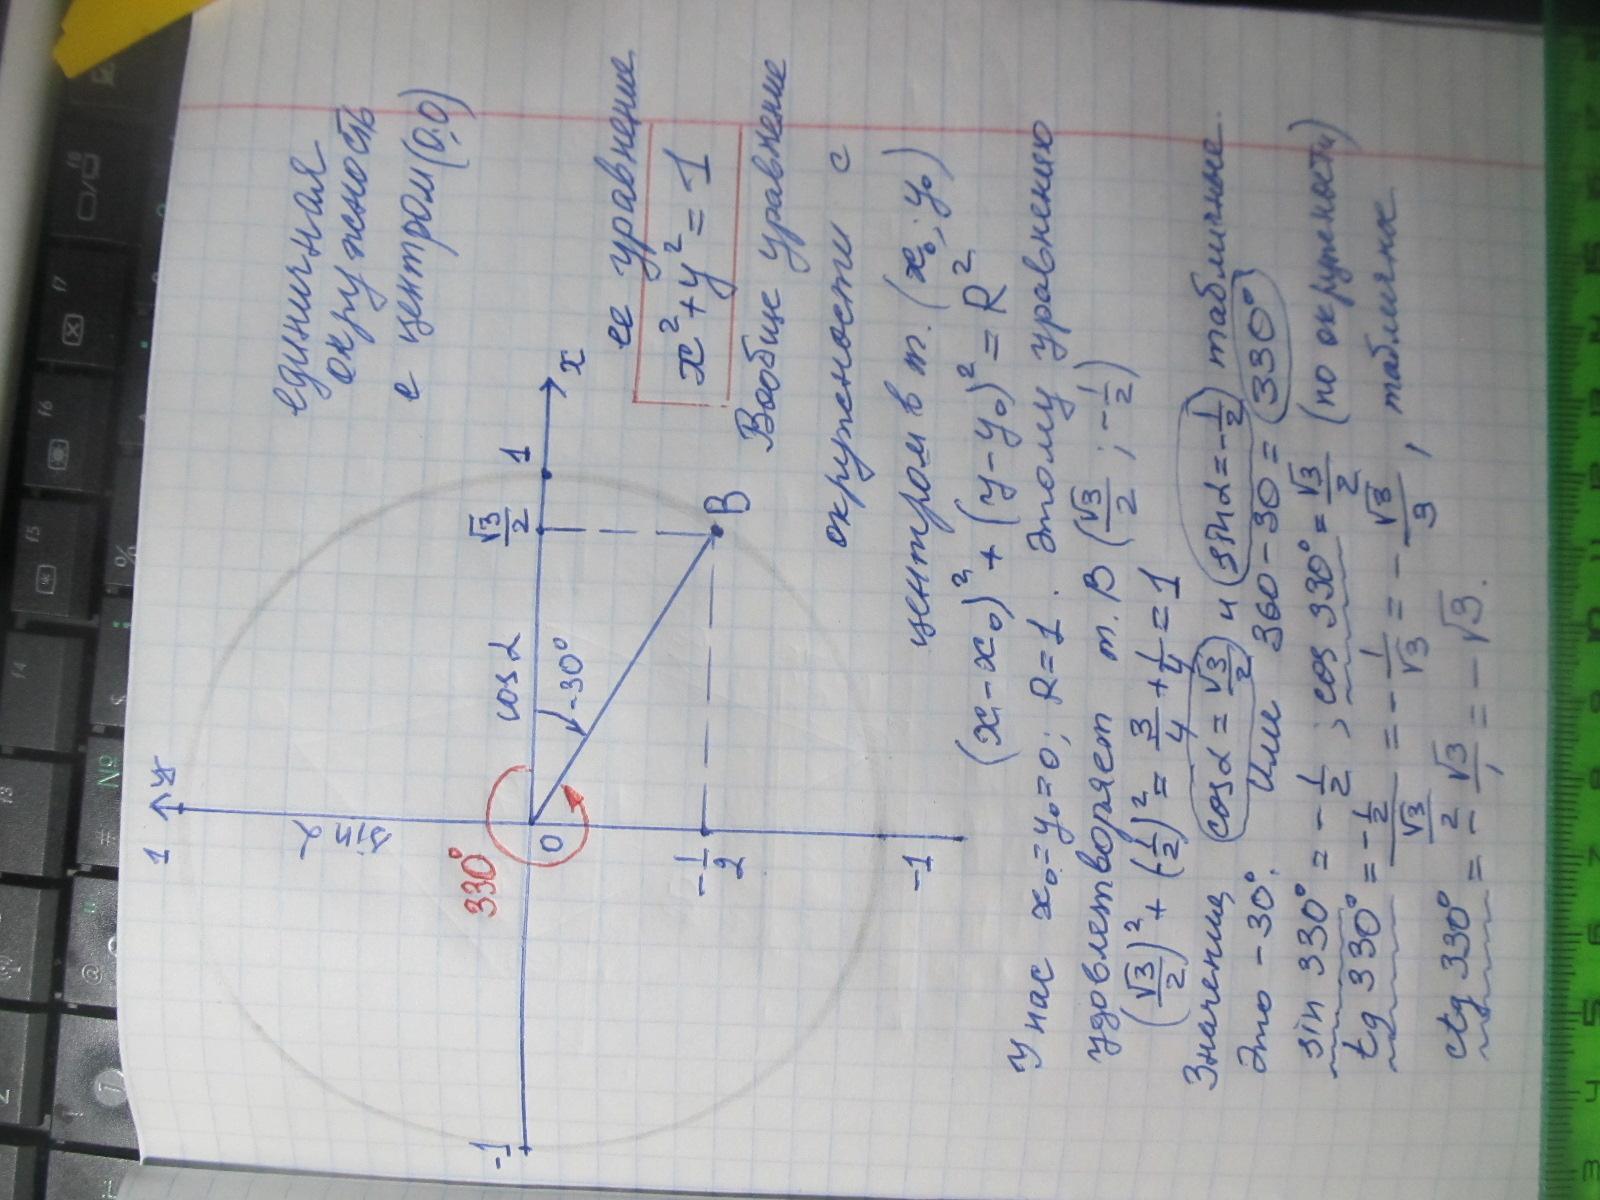 единичная
окружность
с центром (0,0)
y
1
sin α
330°
cos α
√3/2
1
x
0
-30°
-1
B
-1/2
-1
ее уравнение
x² + y² = 1
Вообще уравнение
окружности с
центром в т. (x₀; y₀)
(x - x₀)² + (y - y₀)² = R²
У нас x₀ = y₀ = 0; R = 1. Этому уравнению
удовлетворяет т. B (√3/2 ; -1/2)
(√3/2)² + (1/2)² = 3/4 + 1/4 = 1
Значения cos α = √3/2 и sin α = -1/2 табличные.
Это -30°. Или 360 - 30 = 330°
sin 330° = -1/2 ; cos 330° = √3/2 (по окружности)
tg 330° = -1/2 / √3/2 = -1/√3 = -√3/3 , таблична
ctg 330° = -√3/1 = -√3.